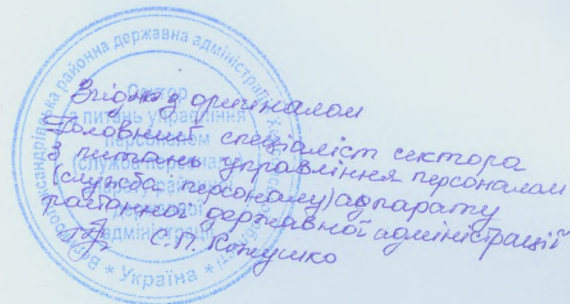 Згідно з оригіналом
Головний спеціаліст сектора
з питань управління персоналом
(служба персоналу) апарату
районної державної адміністрації
С.П. Кожушко
районна державна адміністрація
Сектор
з питань управління
персоналом
(служба персоналу)
адміністрації
* Україна *